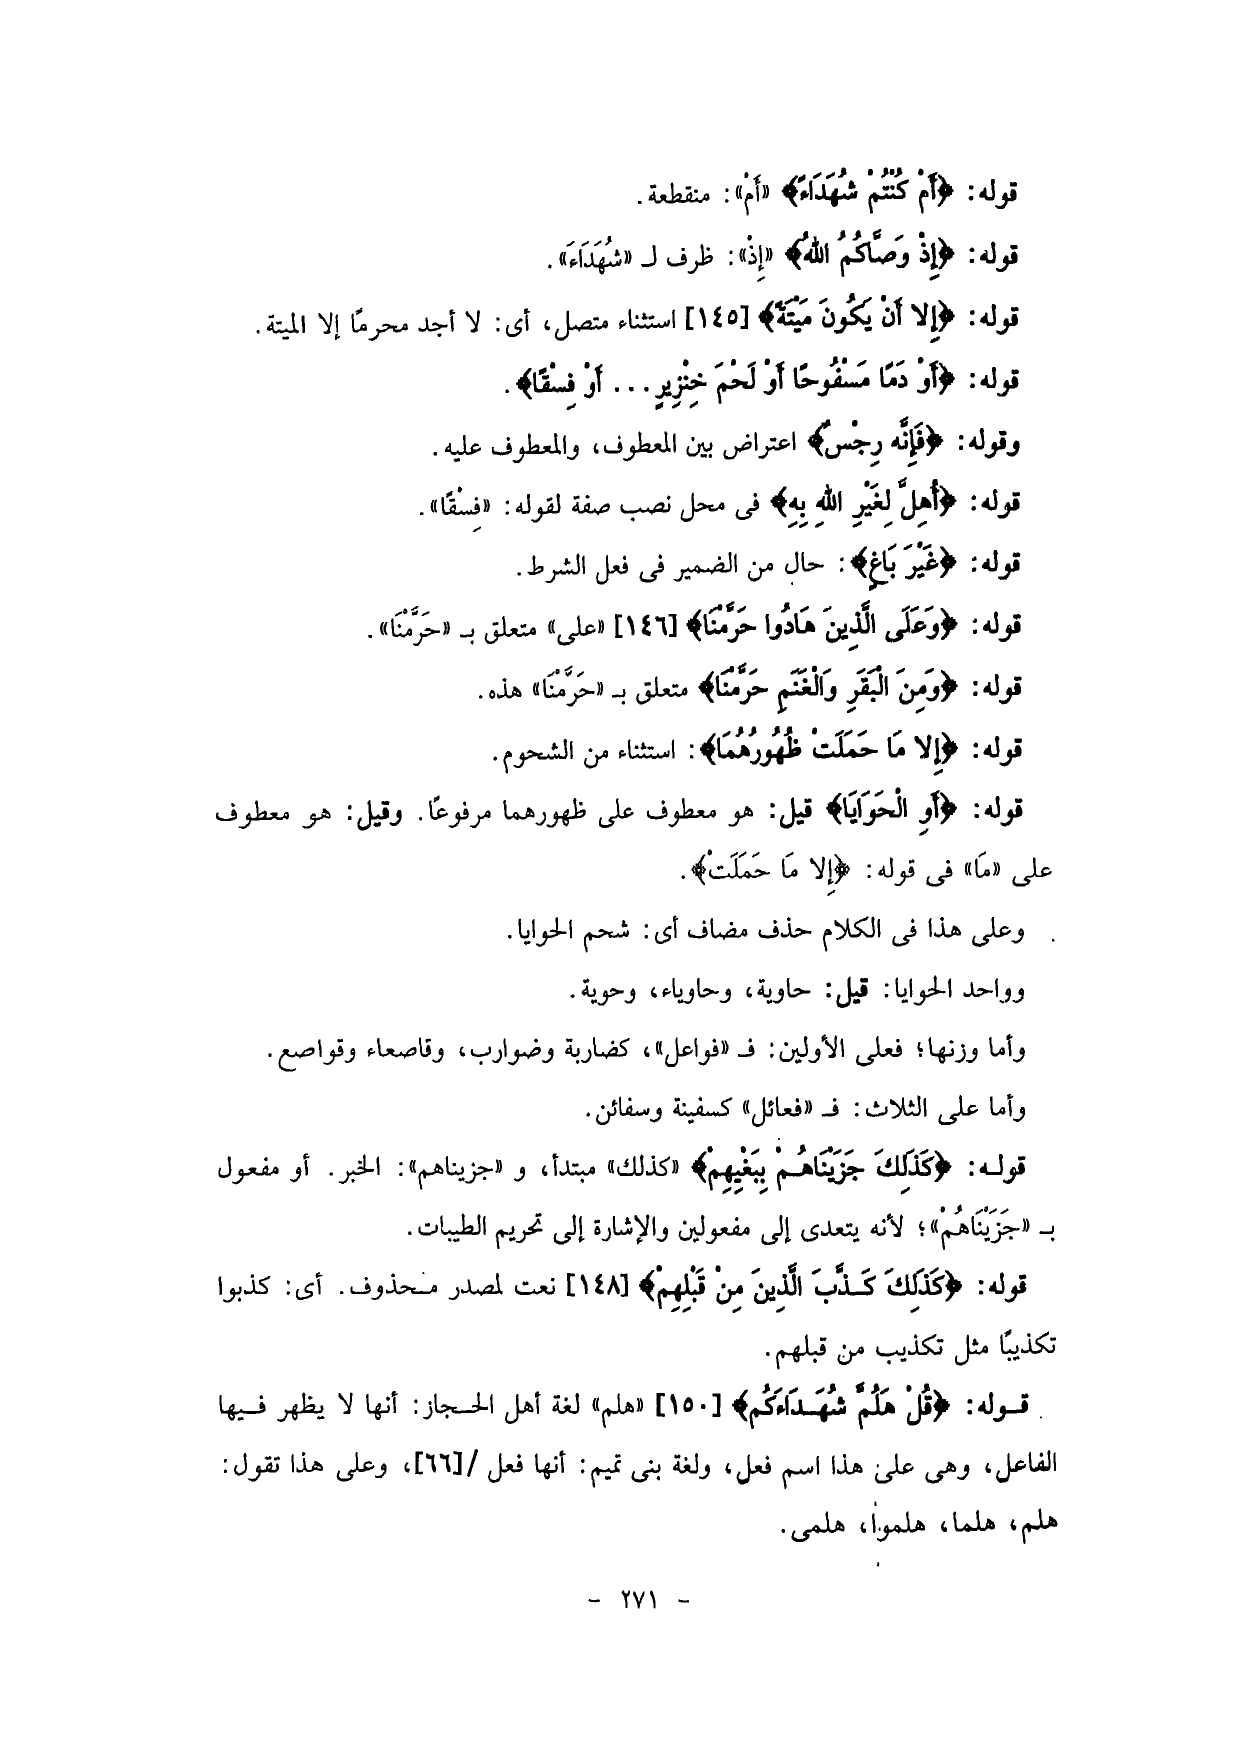 قوله: ﴿أَمْ كُنْتُمْ شُهَدَاءَ﴾ «أَمْ»: منقطعة.
قوله: ﴿إِذْ وَصَّاكُمُ اللهُ﴾ «إِذْ»: ظرف لـ «شُهَدَاءَ».
قوله: ﴿إِلا أَنْ يَكُونَ مَيْتَةً﴾ [١٤٥] استثناء متصل، أى: لا أجد محرمًا إلا الميتة.
قوله: ﴿أَوْ دَمًا مَسْفُوحًا أَوْ لَحْمَ خِنْزِيرٍ... أَوْ فِسْقًا﴾.
وقوله: ﴿فَإِنَّه رِجْسٌ﴾ اعتراض بين المعطوف، والمعطوف عليه.
قوله: ﴿أُهِلَّ لِغَيْرِ اللهِ بِهِ﴾ فى محل نصب صفة لقوله: «فِسْقًا».
قوله: ﴿غَيْرَ بَاغٍ﴾: حال من الضمير فى فعل الشرط.
قوله: ﴿وَعَلَى الَّذِينَ هَادُوا حَرَّمْنَا﴾ [١٤٦] «على» متعلق بـ «حَرَّمْنَا».
قوله: ﴿وَمِنَ الْبَقَرِ وَالْغَنَمِ حَرَّمْنَا﴾ متعلق بـ «حَرَّمْنَا» هذه.
قوله: ﴿إِلا مَا حَمَلَتْ ظُهُورُهُمَا﴾: استثناء من الشحوم.
قوله: ﴿أَوِ الْحَوَايَا﴾ قيل: هو معطوف على ظهورهما مرفوعًا. وقيل: هو معطوف
على «مَا» فى قوله: ﴿إِلا مَا حَمَلَتْ﴾.
وعلى هذا فى الكلام حذف مضاف أى: شحم الحوايا.
وواحد الحوايا: قيل: حاوية، وحاوياء، وحوية.
وأما وزنها؛ فعلى الأولين: فـ «فواعل»، كضاربة وضوارب، وقاصعاء وقواصع.
وأما على الثلاث: فـ «فعائل» كسفينة وسفائن.
قولـه: ﴿كَذَلِكَ جَزَيْنَاهُـمْ بِبَغْيِهِمْ﴾ «كذلك» مبتدأ، و «جزيناهم»: الخبر. أو مفعول
بـ «جَزَيْنَاهُمْ»؛ لأنه يتعدى إلى مفعولين والإشارة إلى تحريم الطيبات.
قوله: ﴿كَذَلِكَ كَـذَّبَ الَّذِينَ مِنْ قَبْلِهِمْ﴾ [١٤٨] نعت لمصدر محذوف. أى: كذبوا
تكذيبًا مثل تكذيب من قبلهم.
قـوله: ﴿قُلْ هَلُمَّ شُهَـدَاءَكُم﴾ [١٥٠] «هلم» لغة أهل الحـجاز: أنها لا يظهر فـيها
الفاعل، وهى على هذا اسم فعل، ولغة بنى تميم: أنها فعل /[٦٦]، وعلى هذا تقول:
هلم، هلما، هلموا، هلمى.
- ٢٧١ -